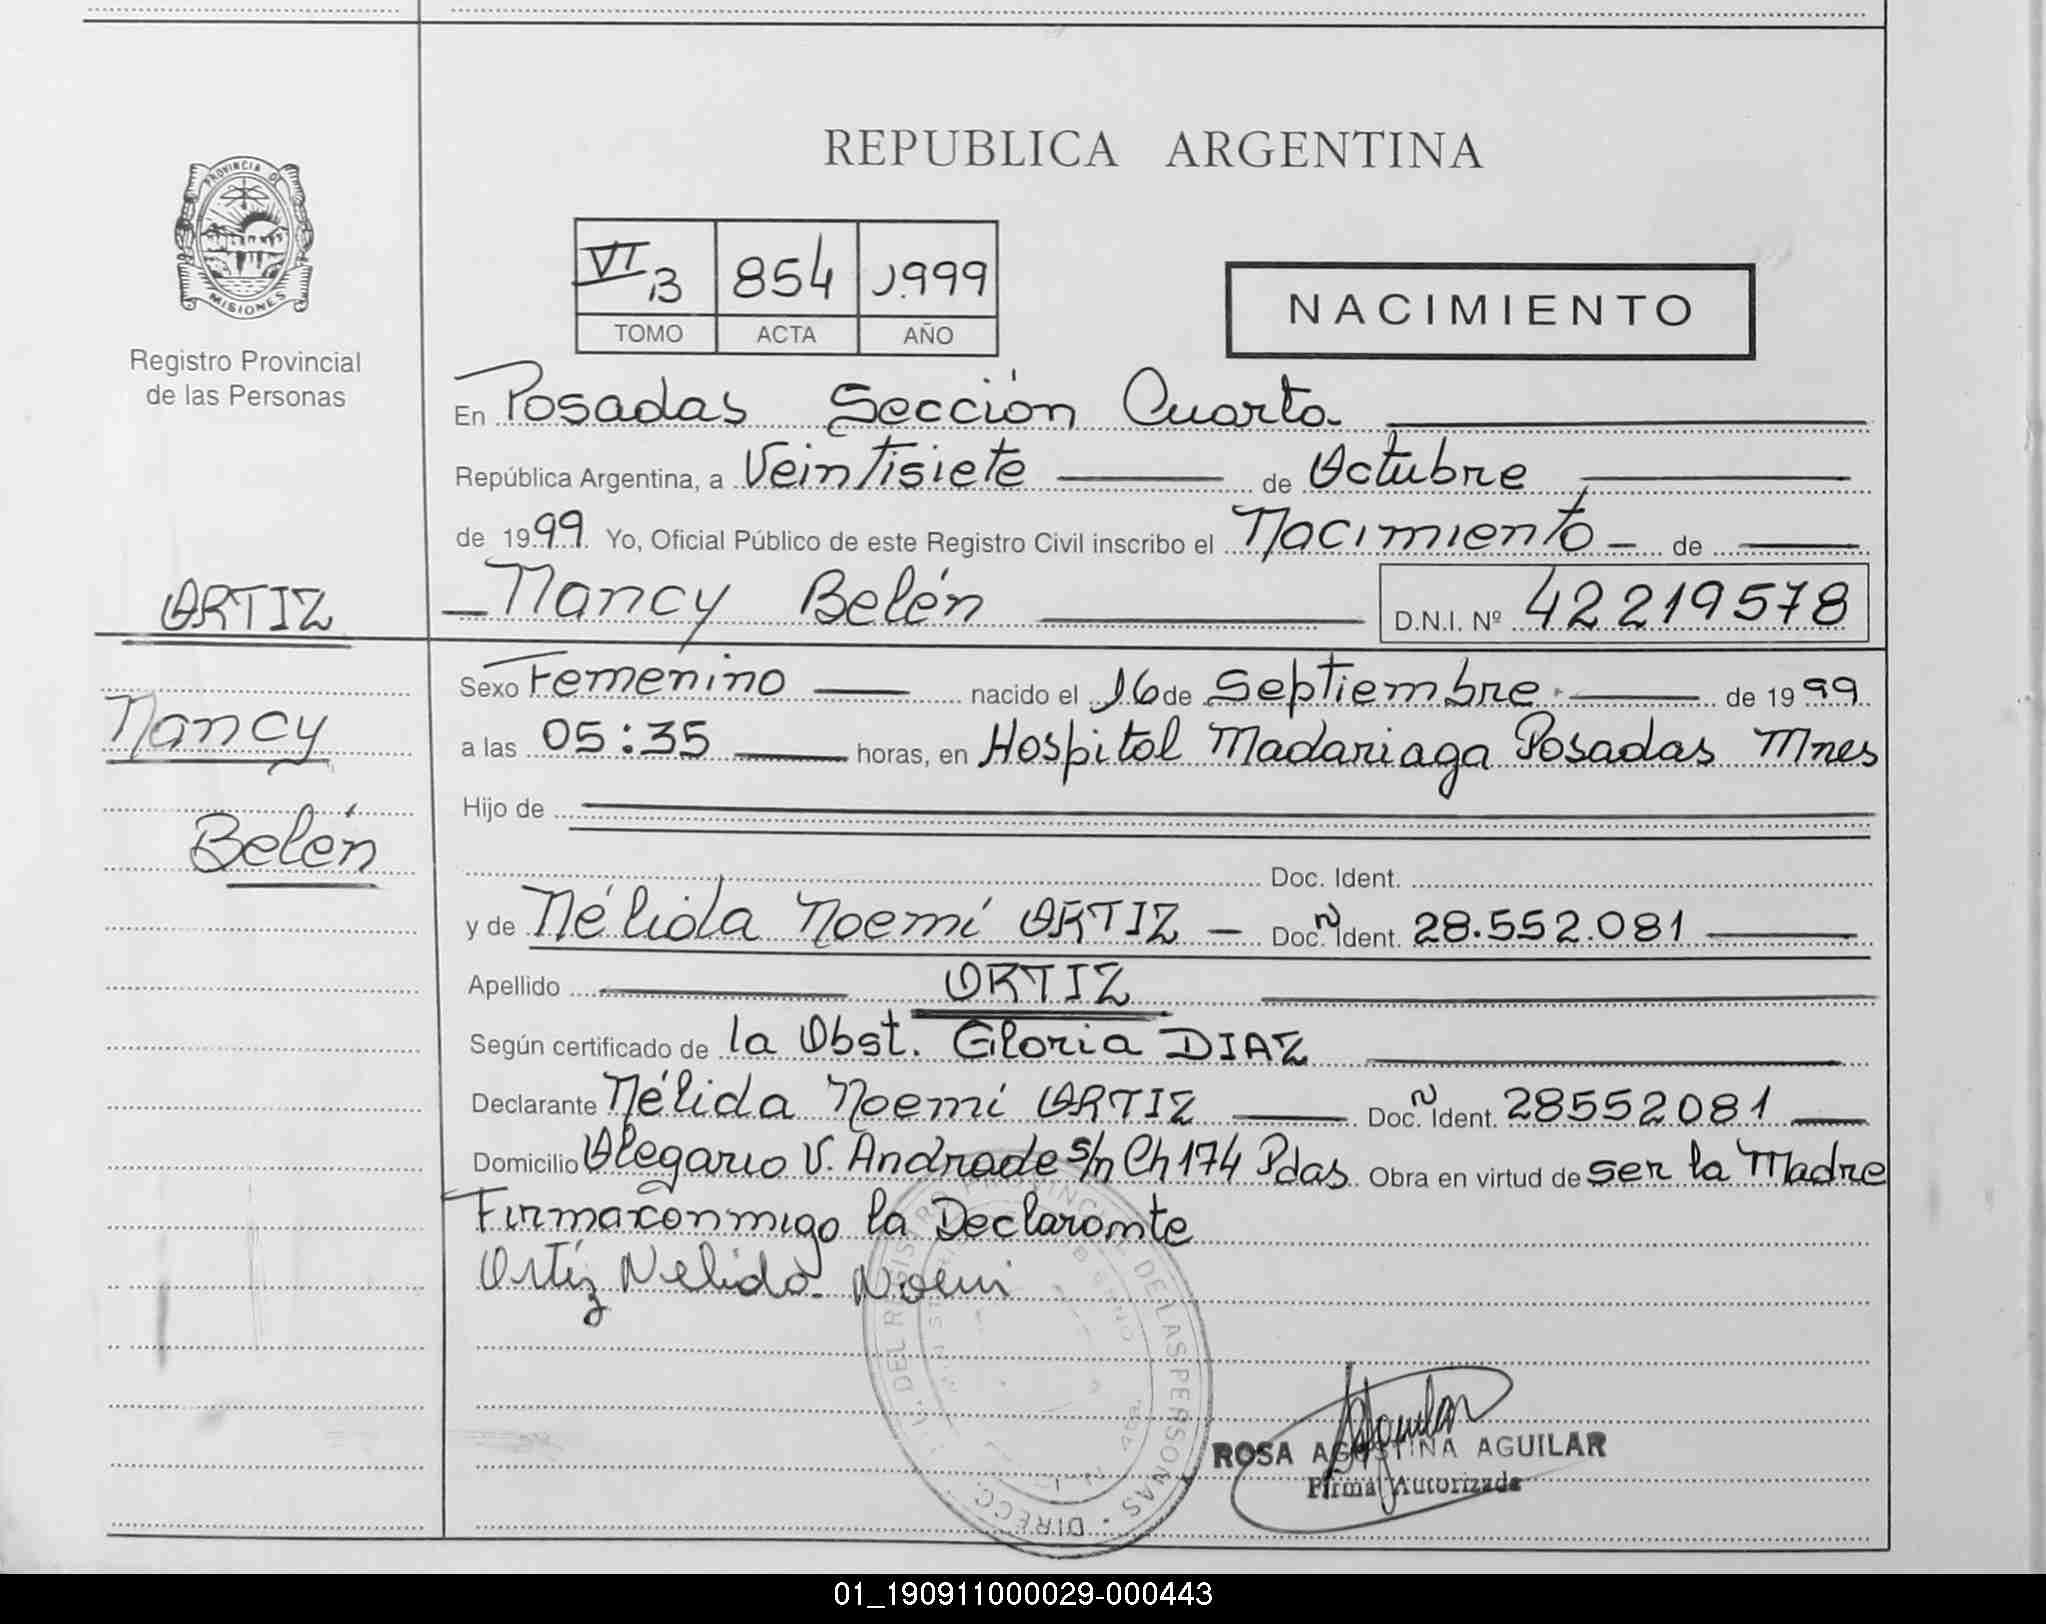 REPUBLICA ARGENTINA
PROVINCIA DE
MISIONES
Registro Provincial
de las Personas
VI B 854 1.999
TOMO ACTA AÑO
NACIMIENTO
En Posadas Sección Cuarta
República Argentina, a Veintisiete de Octubre
de 1999 Yo, Oficial Público de este Registro Civil inscribo el Nacimiento de
ORTIZ
Nancy Belén D.N.I. Nº 42219578
Nancy
Belén
Sexo Femenino nacido el 16 de Septiembre de 1999
a las 05:35 horas, en Hospital Madariaga Posadas Mnes
Hijo de
Doc. Ident.
y de Nélida Noemí ORTIZ Doc. Ident. 28.552.081
Apellido ORTIZ
Según certificado de la Obst. Gloria DIAZ
Declarante Nélida Noemí ORTIZ Doc. Ident. 28552081
Domicilio Olegario V. Andrade s/n Ch 174 Pdas Obra en virtud de ser la Madre
Firma conmigo la Declarante
Ortiz Nelida Noemi
DIRECC. DEL REGISTRO PROVINCIAL DE LAS PERSONAS
ROSA AGOSTINA AGUILAR
Firma Autorizada
01_190911000029-000443